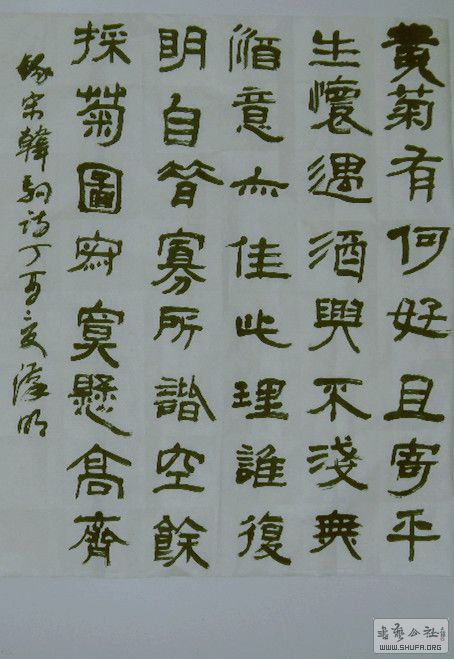 黄菊有何好且寄平
生懷遇酒興不淺無
酒意亦佳此理誰復
明自昔寡所諧空餘
採菊圖寂寞懸高齋
錄宋韓駒詩丁亥之夏漢明
書藝公社
WWW.SHUFA.ORG